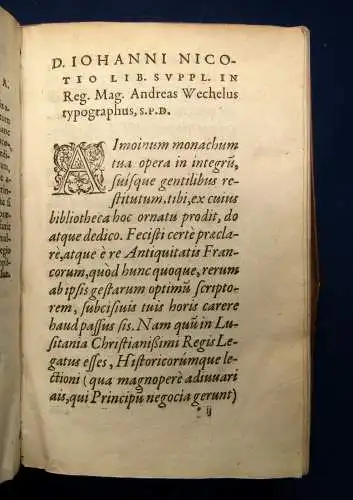 D. IOHANNI NICO-
TIO LIB. SVPPL. IN
Reg. Mag. Andreas Wechelus
typographus, S.P.D.
AImoinum monachum
tua opera in integrũ,
suisque gentilibus re-
stitutum, tibi, ex cuius
bibliotheca hoc ornatu prodit, do
atque dedico. Fecisti certè præcla-
rè, atque è re Antiquitatis Fran-
corum, quòd hunc quoque, rerum
ab ipsis gestarum optimũ scripto-
rem, subcisiuis tuis horis carere
haud passus sis. Nam quũ in Lu-
sitania Christianißimi Regis Le-
gatus esses, Historicorúmque le-
ctioni (qua magnopere adiuuari
ais, qui Principũ negocia gerunt)
ij